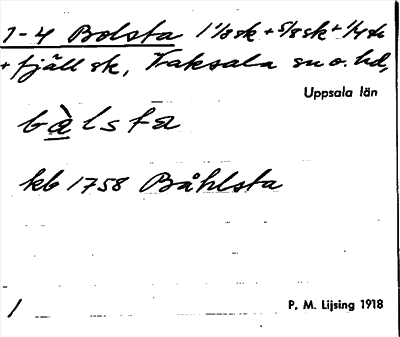 1-4 Bolsta 1 1/8 sk + 5/8 sk + 1/4 sk
+ fjäll sk, Vaksala sn o. hd,
Uppsala län
bàlsta
kb 1758 Båhlsta
1
P. M. Lijsing 1918